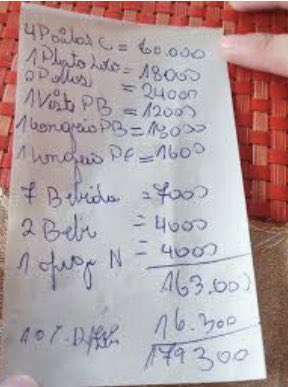 4 Pailas C = 60.000
1 Plato = 18000
2 Pollos = 24000
1 Viste PB = 12000
1 Congrio PB = 13000
1 Congrio PF = 1600
7 Bebida = 7000
2 Bebi = 4000
1 N = 4000
163.000
10%. 16.300
179300